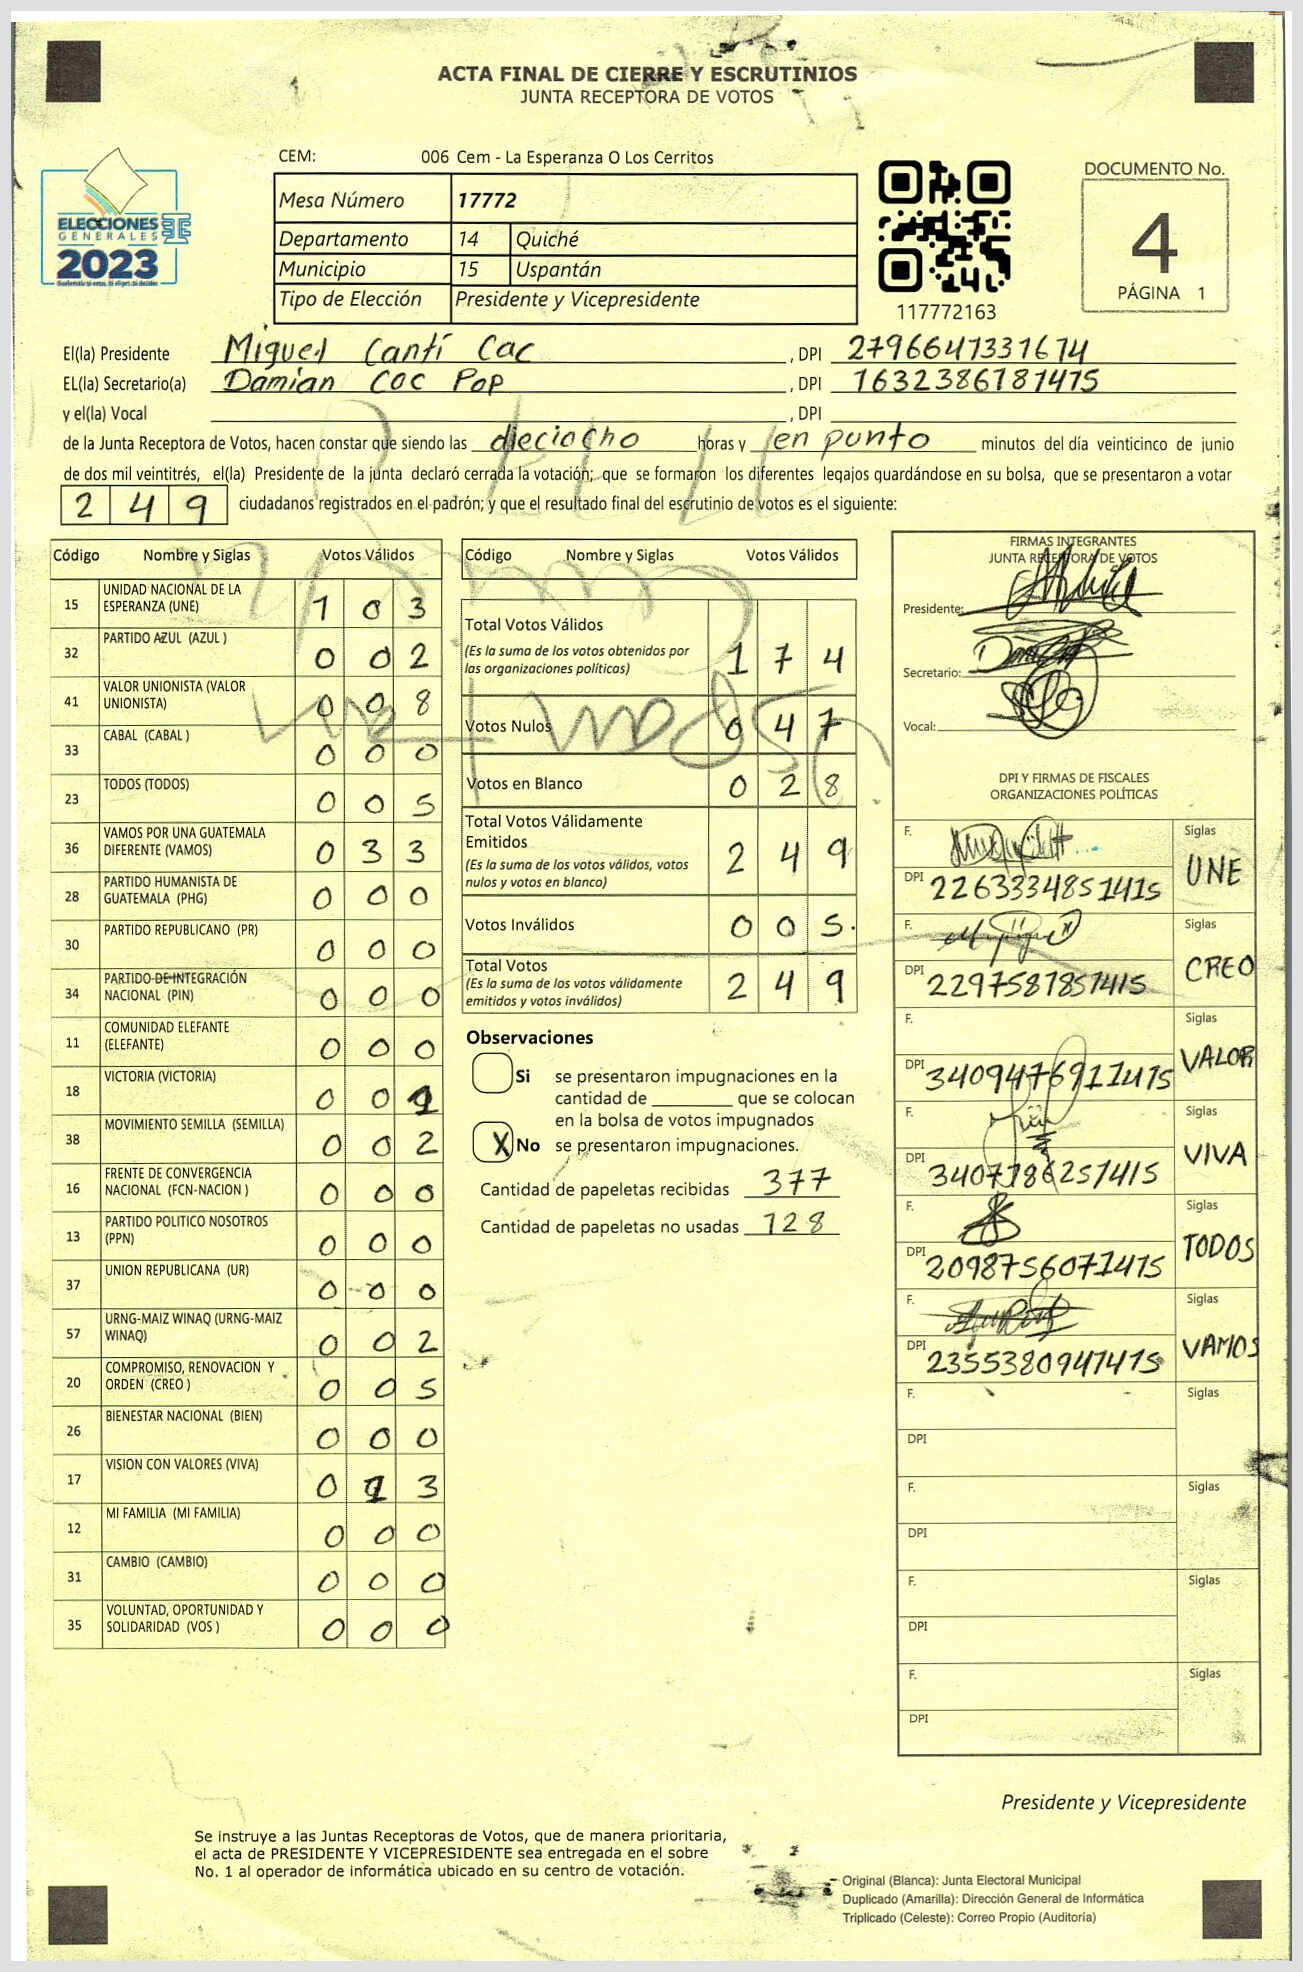 ACTA FINAL DE CIERRE Y ESCRUTINIOS
JUNTA RECEPTORA DE VOTOS
CEM: 006 Cem - La Esperanza O Los Cerritos
ELECCIONES
GENERALES
2023
Mesa Número 17772
Departamento 14 Quiché
Municipio 15 Uspantán
Tipo de Elección Presidente y Vicepresidente
117772163
DOCUMENTO No.
4
PÁGINA 1
El(la) Presidente Miguel Cantí Cac, DPI 2796641331614
EL(la) Secretario(a) Damian Coc Pop, DPI 1632386181415
y el(la) Vocal , DPI
de la Junta Receptora de Votos, hacen constar que siendo las dieciocho horas y en punto minutos del día veinticinco de junio
de dos mil veintitrés, el(la) Presidente de la junta declaró cerrada la votación; que se formaron los diferentes legajos guardándose en su bolsa, que se presentaron a votar
249 ciudadanos registrados en el padrón; y que el resultado final del escrutinio de votos es el siguiente:
Código Nombre y Siglas Votos Válidos
15 UNIDAD NACIONAL DE LA ESPERANZA (UNE) 1 0 3
32 PARTIDO AZUL (AZUL ) 0 0 2
41 VALOR UNIONISTA (VALOR UNIONISTA) 0 0 8
33 CABAL (CABAL ) 0 0 0
23 TODOS (TODOS) 0 0 5
36 VAMOS POR UNA GUATEMALA DIFERENTE (VAMOS) 0 3 3
28 PARTIDO HUMANISTA DE GUATEMALA (PHG) 0 0 0
30 PARTIDO REPUBLICANO (PR) 0 0 0
34 PARTIDO DE INTEGRACIÓN NACIONAL (PIN) 0 0 0
11 COMUNIDAD ELEFANTE (ELEFANTE) 0 0 0
18 VICTORIA (VICTORIA) 0 0 1
38 MOVIMIENTO SEMILLA (SEMILLA) 0 0 2
16 FRENTE DE CONVERGENCIA NACIONAL (FCN-NACION ) 0 0 0
13 PARTIDO POLITICO NOSOTROS (PPN) 0 0 0
37 UNION REPUBLICANA (UR) 0 0 0
57 URNG-MAIZ WINAQ (URNG-MAIZ WINAQ) 0 0 2
20 COMPROMISO, RENOVACION Y ORDEN (CREO ) 0 0 5
26 BIENESTAR NACIONAL (BIEN) 0 0 0
17 VISION CON VALORES (VIVA) 0 1 3
12 MI FAMILIA (MI FAMILIA) 0 0 0
31 CAMBIO (CAMBIO) 0 0 0
35 VOLUNTAD, OPORTUNIDAD Y SOLIDARIDAD (VOS ) 0 0 0
Código Nombre y Siglas Votos Válidos
Total Votos Válidos 1 7 4
(Es la suma de los votos obtenidos por
las organizaciones políticas)
Votos Nulos 0 4 7
Votos en Blanco 0 2 8
Total Votos Válidamente
Emitidos 2 4 9
(Es la suma de los votos válidos, votos
nulos y votos en blanco)
Votos Inválidos 0 0 5.
Total Votos 2 4 9
(Es la suma de los votos válidamente
emitidos y votos inválidos)
Observaciones
Si se presentaron impugnaciones en la
cantidad de ________ que se colocan
en la bolsa de votos impugnados
X No se presentaron impugnaciones.
Cantidad de papeletas recibidas 377
Cantidad de papeletas no usadas 128
FIRMAS INTEGRANTES
JUNTA RECEPTORA DE VOTOS
Presidente:
Secretario:
Vocal:
DPI Y FIRMAS DE FISCALES
ORGANIZACIONES POLÍTICAS
F. Siglas UNE
DPI 2263334851415
F. Siglas CREO
DPI 2297587851415
F. Siglas VALOR
DPI 3409476911415
F. Siglas VIVA
DPI 3407786251415
F. Siglas TODOS
DPI 2098756071415
F. Siglas VAMOS
DPI 2355380941415
F. Siglas
DPI
F. Siglas
DPI
F. Siglas
DPI
F. Siglas
DPI
Presidente y Vicepresidente
Se instruye a las Juntas Receptoras de Votos, que de manera prioritaria,
el acta de PRESIDENTE Y VICEPRESIDENTE sea entregada en el sobre
No. 1 al operador de informática ubicado en su centro de votación.
Original (Blanca): Junta Electoral Municipal
Duplicado (Amarilla): Dirección General de Informática
Triplicado (Celeste): Correo Propio (Auditoría)